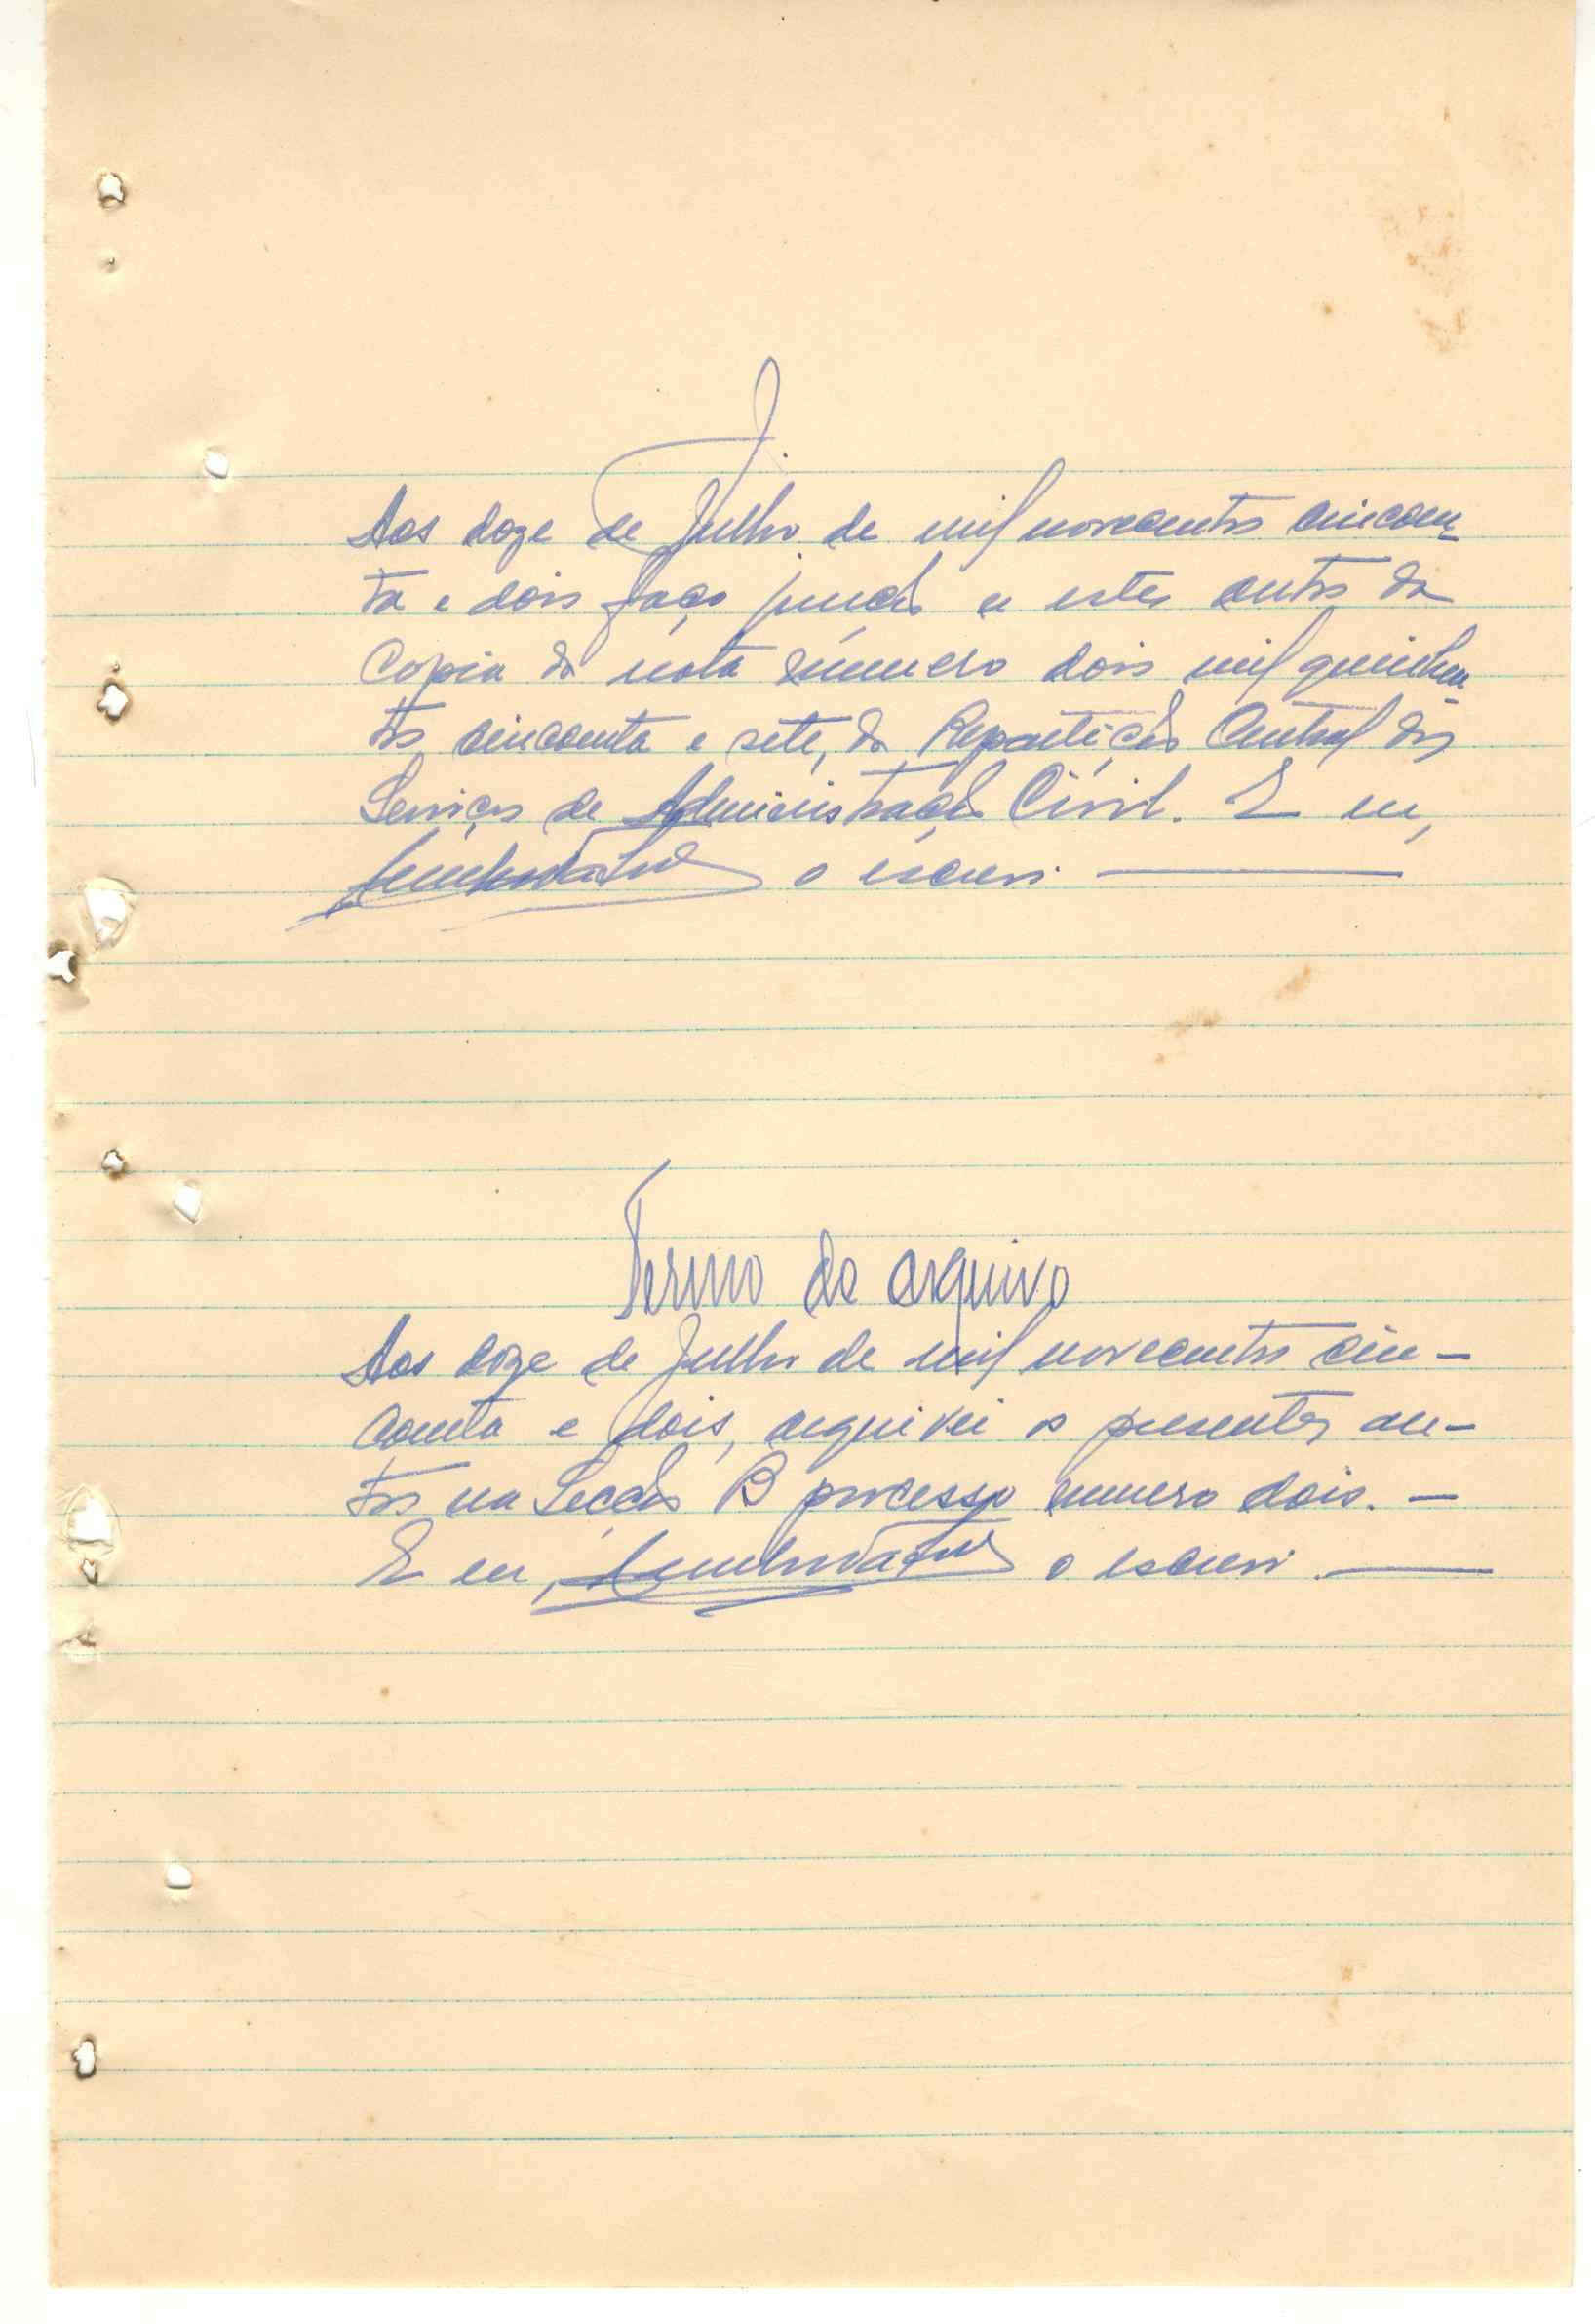 J.
Aos doze de Julho de mil novecentos cincoen-
ta e dois faço junção a estes autos da
Copia da nota número dois mil quinhen-
tos cincoenta e sete, da Repartição Central dos
Serviços de Administração Civil. E eu,
o escrevi
Termo de arquivo
Aos doze de Julho de mil novecentos cin-
coenta e dois, arquivei os presentes au-
tos na Secção B processo numero dois. -
E eu, o escrevi.